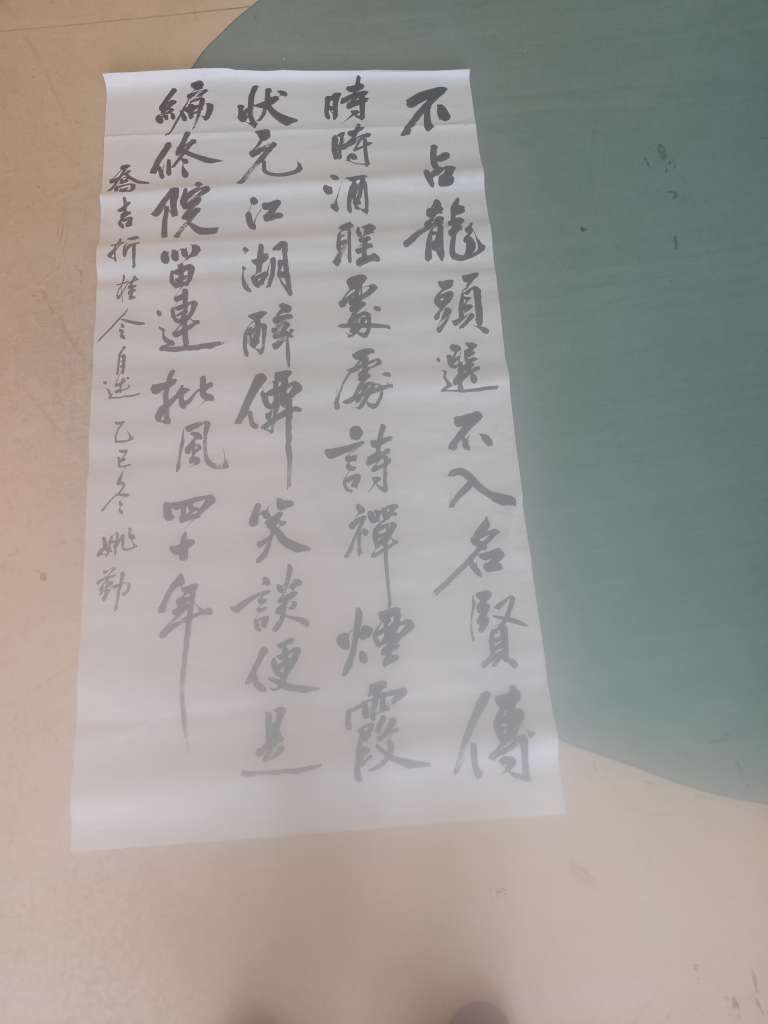 不占龍頭選不入名賢傳
時時酒聖處處詩禪煙霞
狀元江湖醉僊笑談便是
編修院留連批風四十年
喬吉折桂令自述 乙巳冬 姚勤